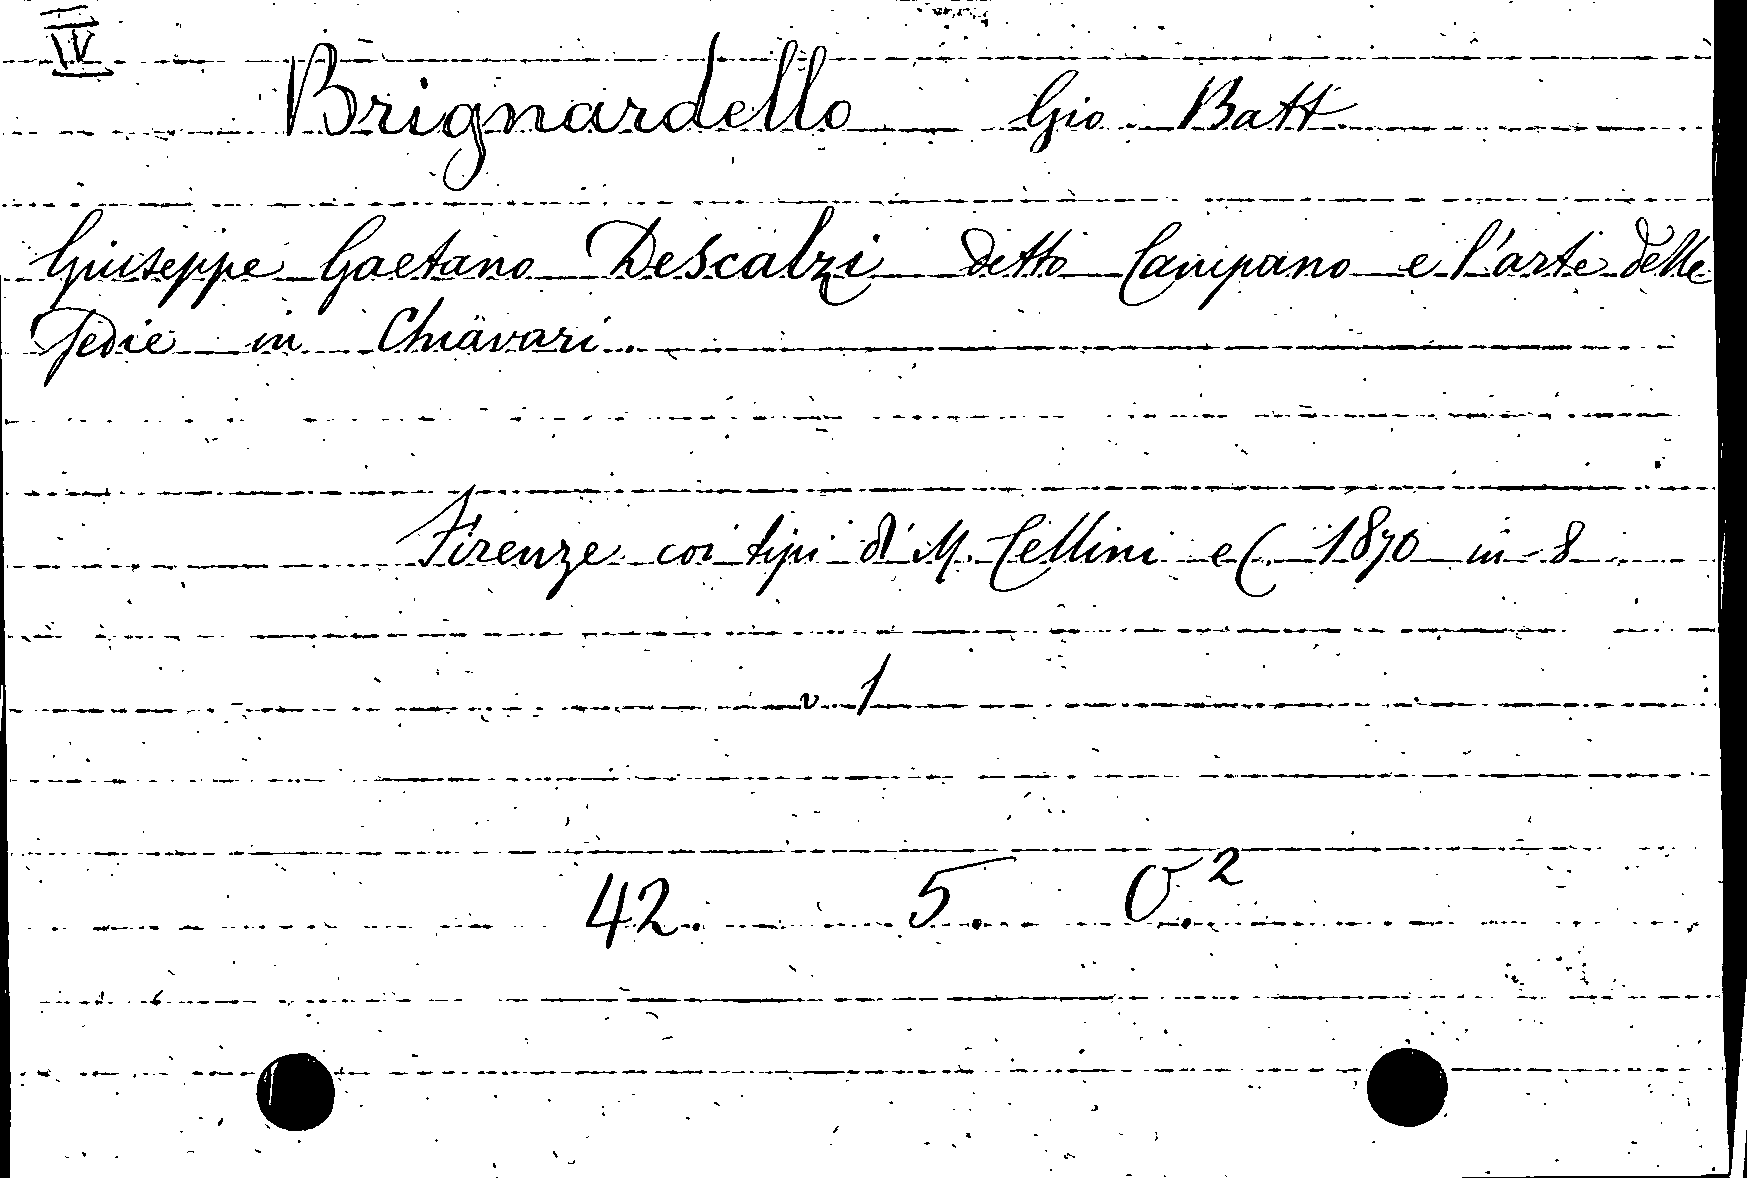 IV
Brignardello Gio. Batt
Giuseppe Gaetano Descalzi detto Campano e l'arte delle
Sedie in Chiavari.
Firenze coi tipi di M. Cellini e C. 1870 in-8
v. 1
42. 5. O.²